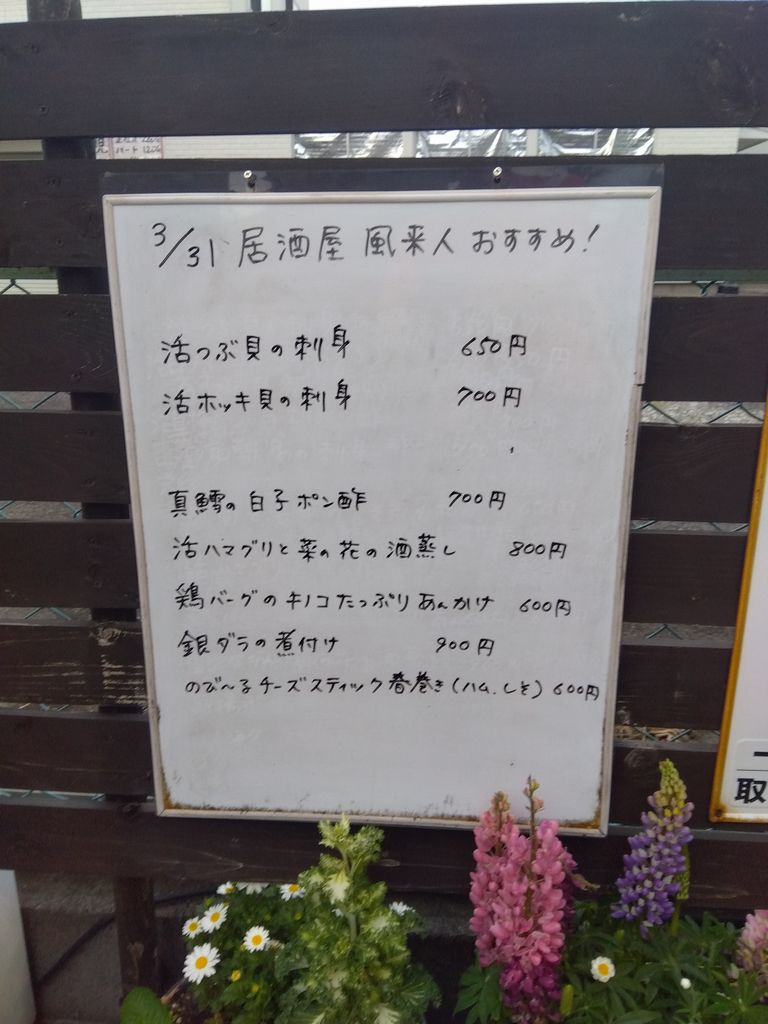 3/31 居酒屋 風来人 おすすめ!
活つぶ貝の刺身 650円
活ホッキ貝の刺身 700円
真鱈の白子ポン酢 700円
活ハマグリと菜の花の酒蒸し 800円
鶏バーグのキノコたっぷりあんかけ 600円
銀ダラの煮付け 900円
のび〜るチーズスティック春巻き(ハム、しそ) 600円
取